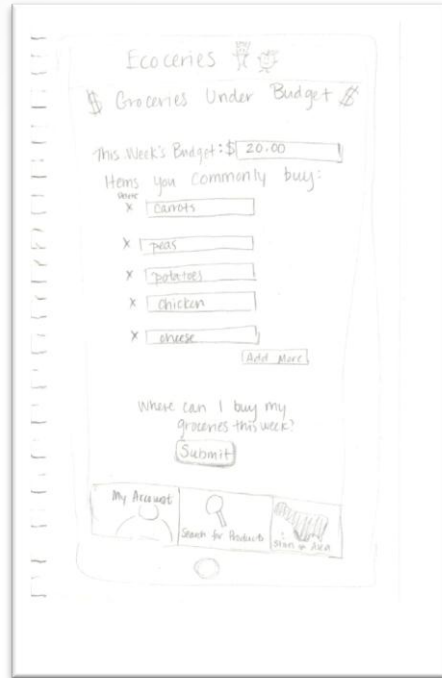 Ecoceries
$ Groceries Under Budget $
This Week's Budget: $ 20.00
Items you commonly buy:
X carrots
X peas
X potatoes
X chicken
X cheese
Add More
Where can I buy my
groceries this week?
Submit
My Account
Search for Products
Area